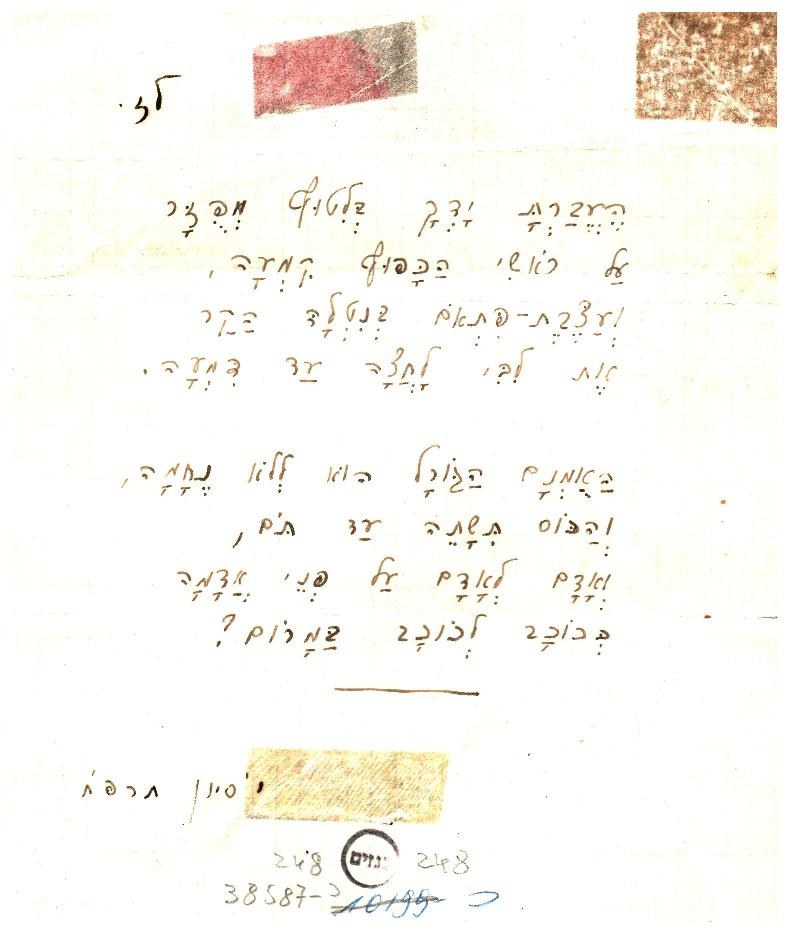 לז.
הֶעֱבַרְתָּ יָדְךָ בְּלִטּוּף מְפֻזָּר
עַל רֹאשִׁי הַכָּפוּף קִמְעָה,
וְעַצֶּבֶת-פִּתְאֹם בְּנִטְלָהּ הַקַּר
אֶת לִבִּי לָחֲצָה עַד דִּמְעָה.
הַאֻמְנָם הַגּוֹרָל הוּא לְלֹא נֶחָמָה,
וְהַכּוֹס תִּשָּׁתֶה עַד תֹּם,
וְאָדָם לְאָדָם עַל פְּנֵי אֲדָמָה
כְּכוֹכָב לְכוֹכָב בַּמָּרוֹם?
י' סיון תרפ"ח
248 גנזים 248
38587-כ 10199- כ